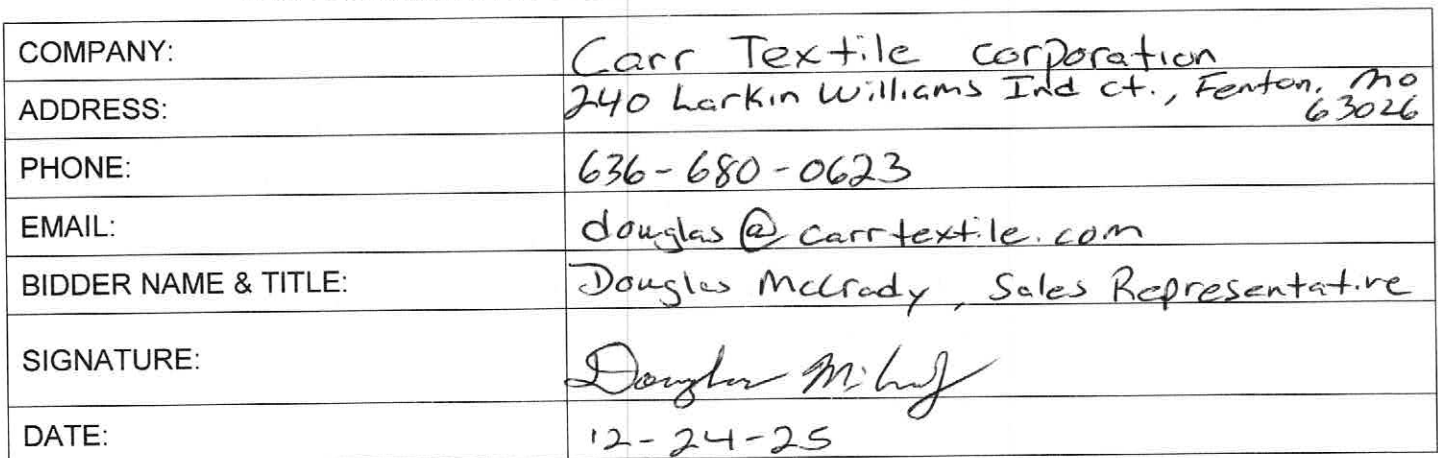 COMPANY: Carr Textile corporation
ADDRESS: 240 Larkin Williams Ind ct., Fenton, mo
63026
PHONE: 636-680-0623
EMAIL: douglas@carrtextile.com
BIDDER NAME & TITLE: Douglas McCrady, Sales Representative
SIGNATURE: Douglas
DATE: 12-24-25